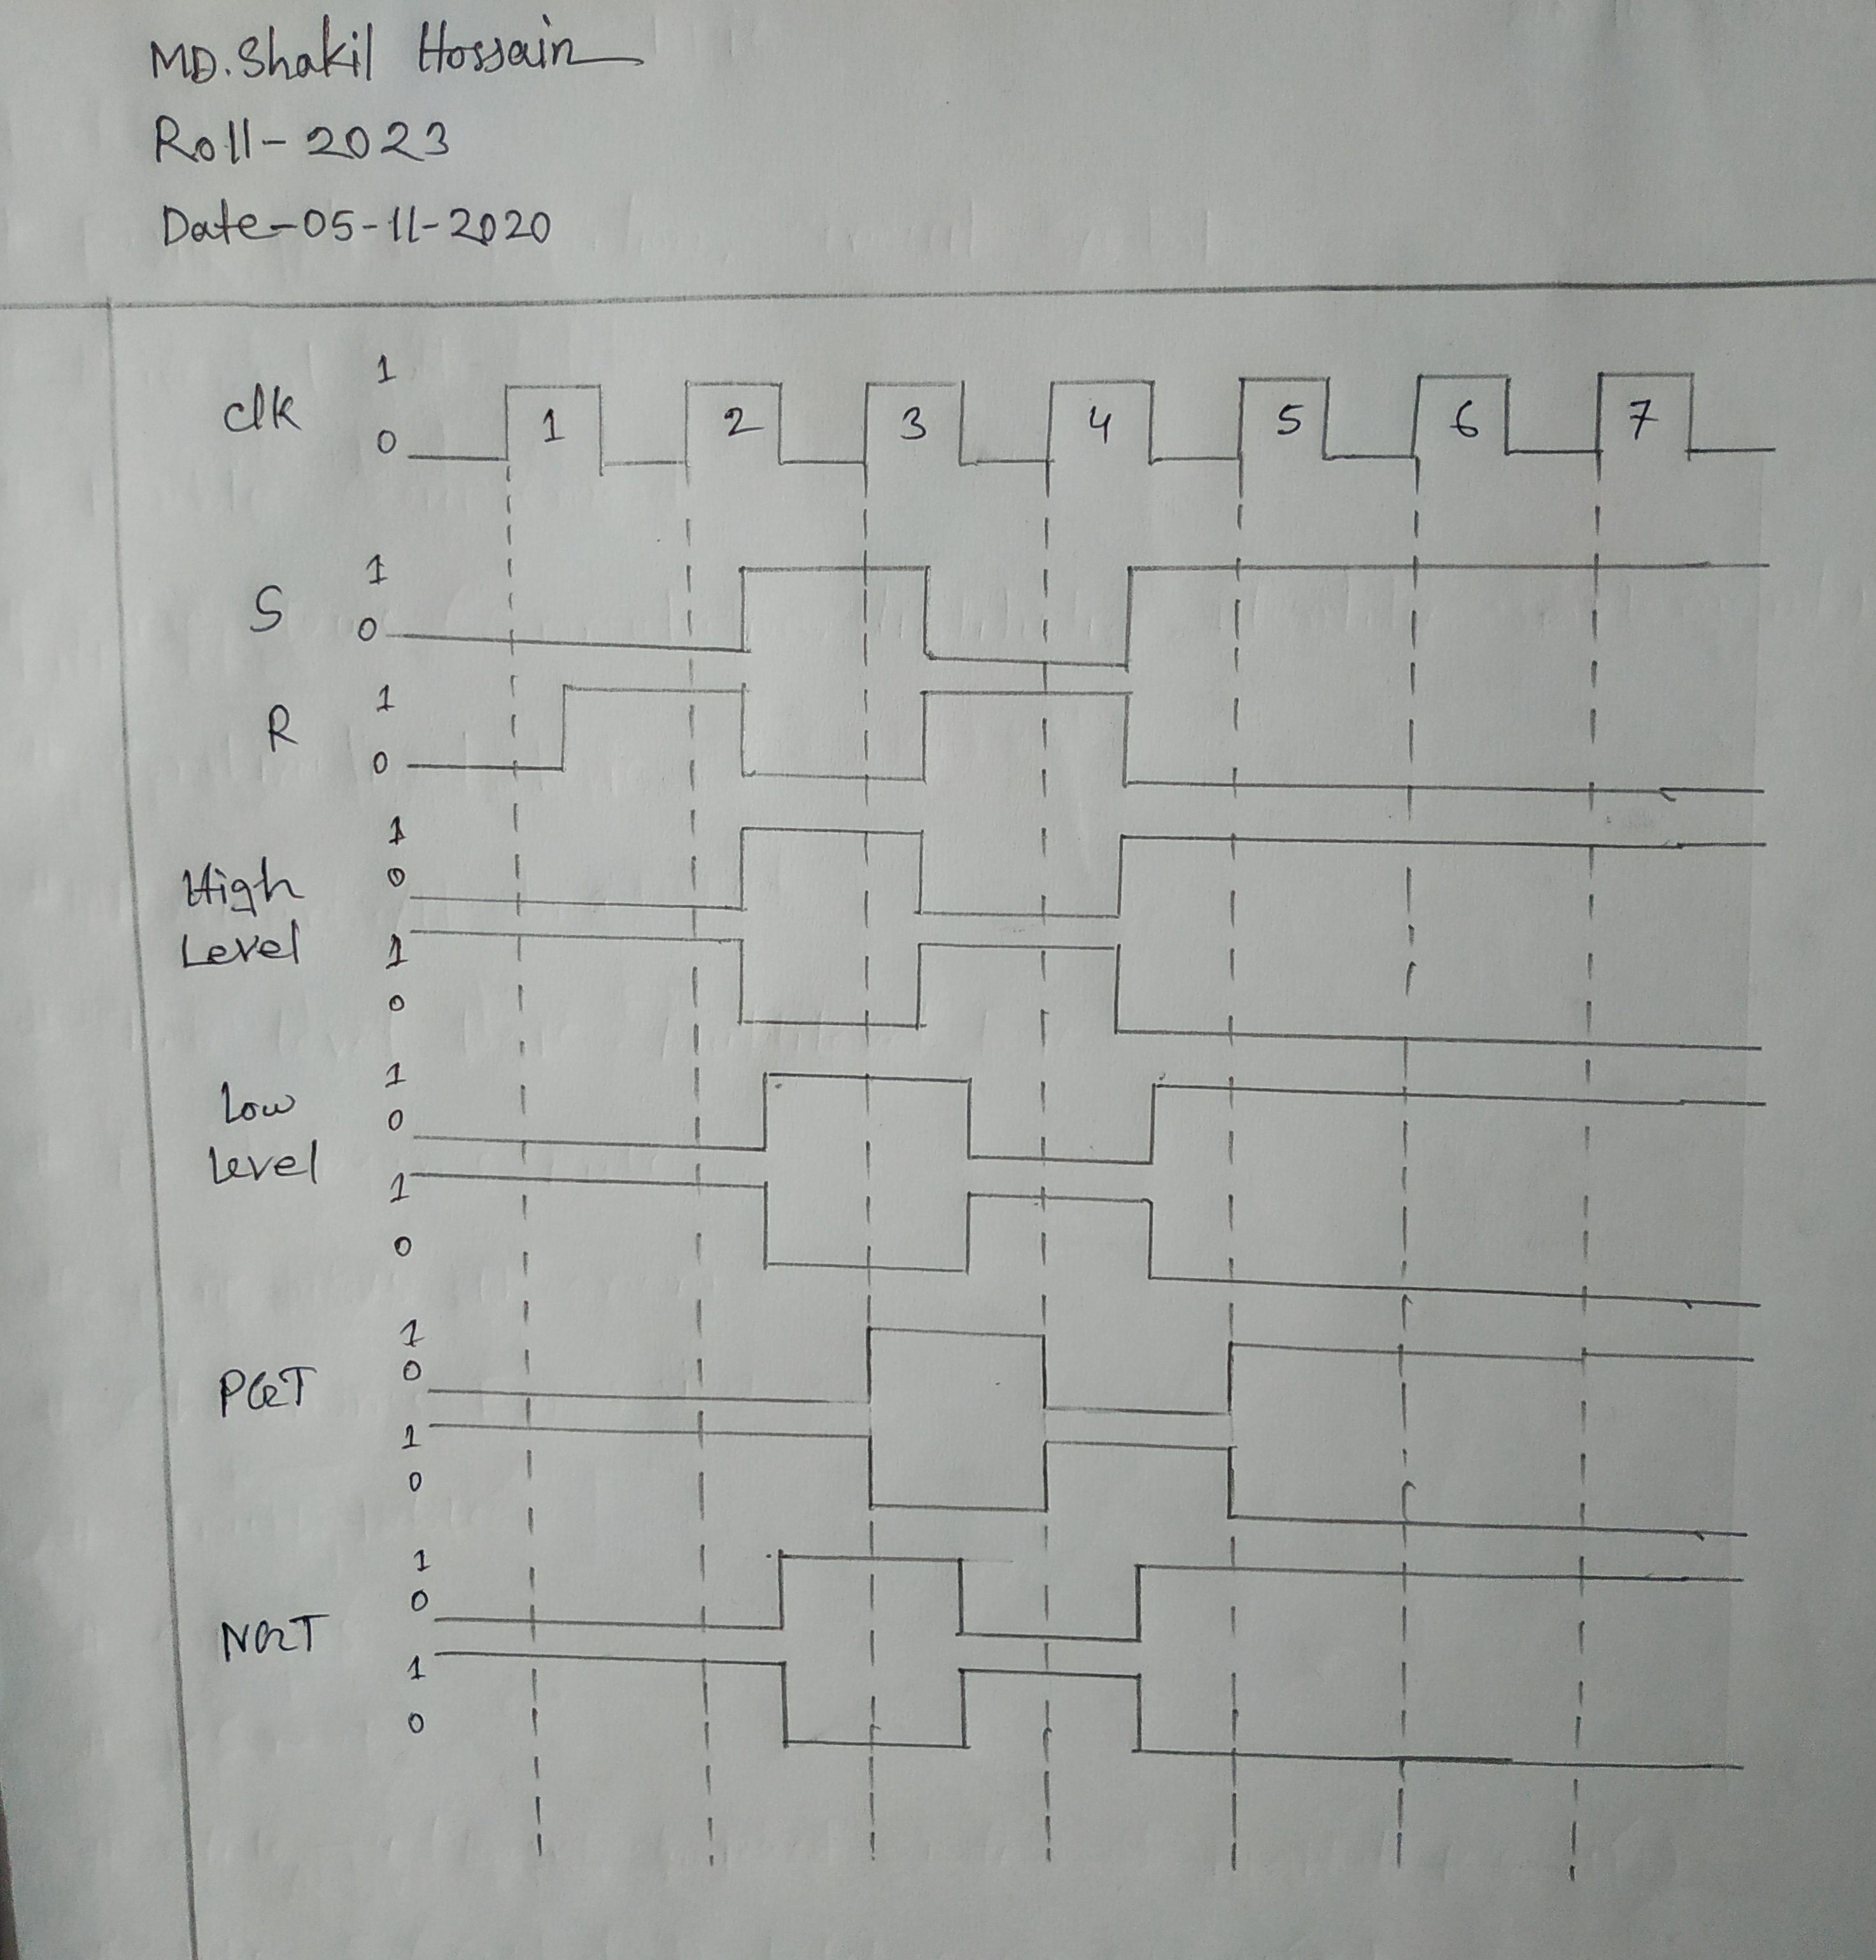 MD. Shakil Hossain
Roll-2023
Date-05-11-2020
clk 1
0
1 2 3 4 5 6 7
S 1
0
R 1
0
High Level 1
0
1
0
Low Level 1
0
1
0
PGT 1
0
1
0
NGT 1
0
1
0